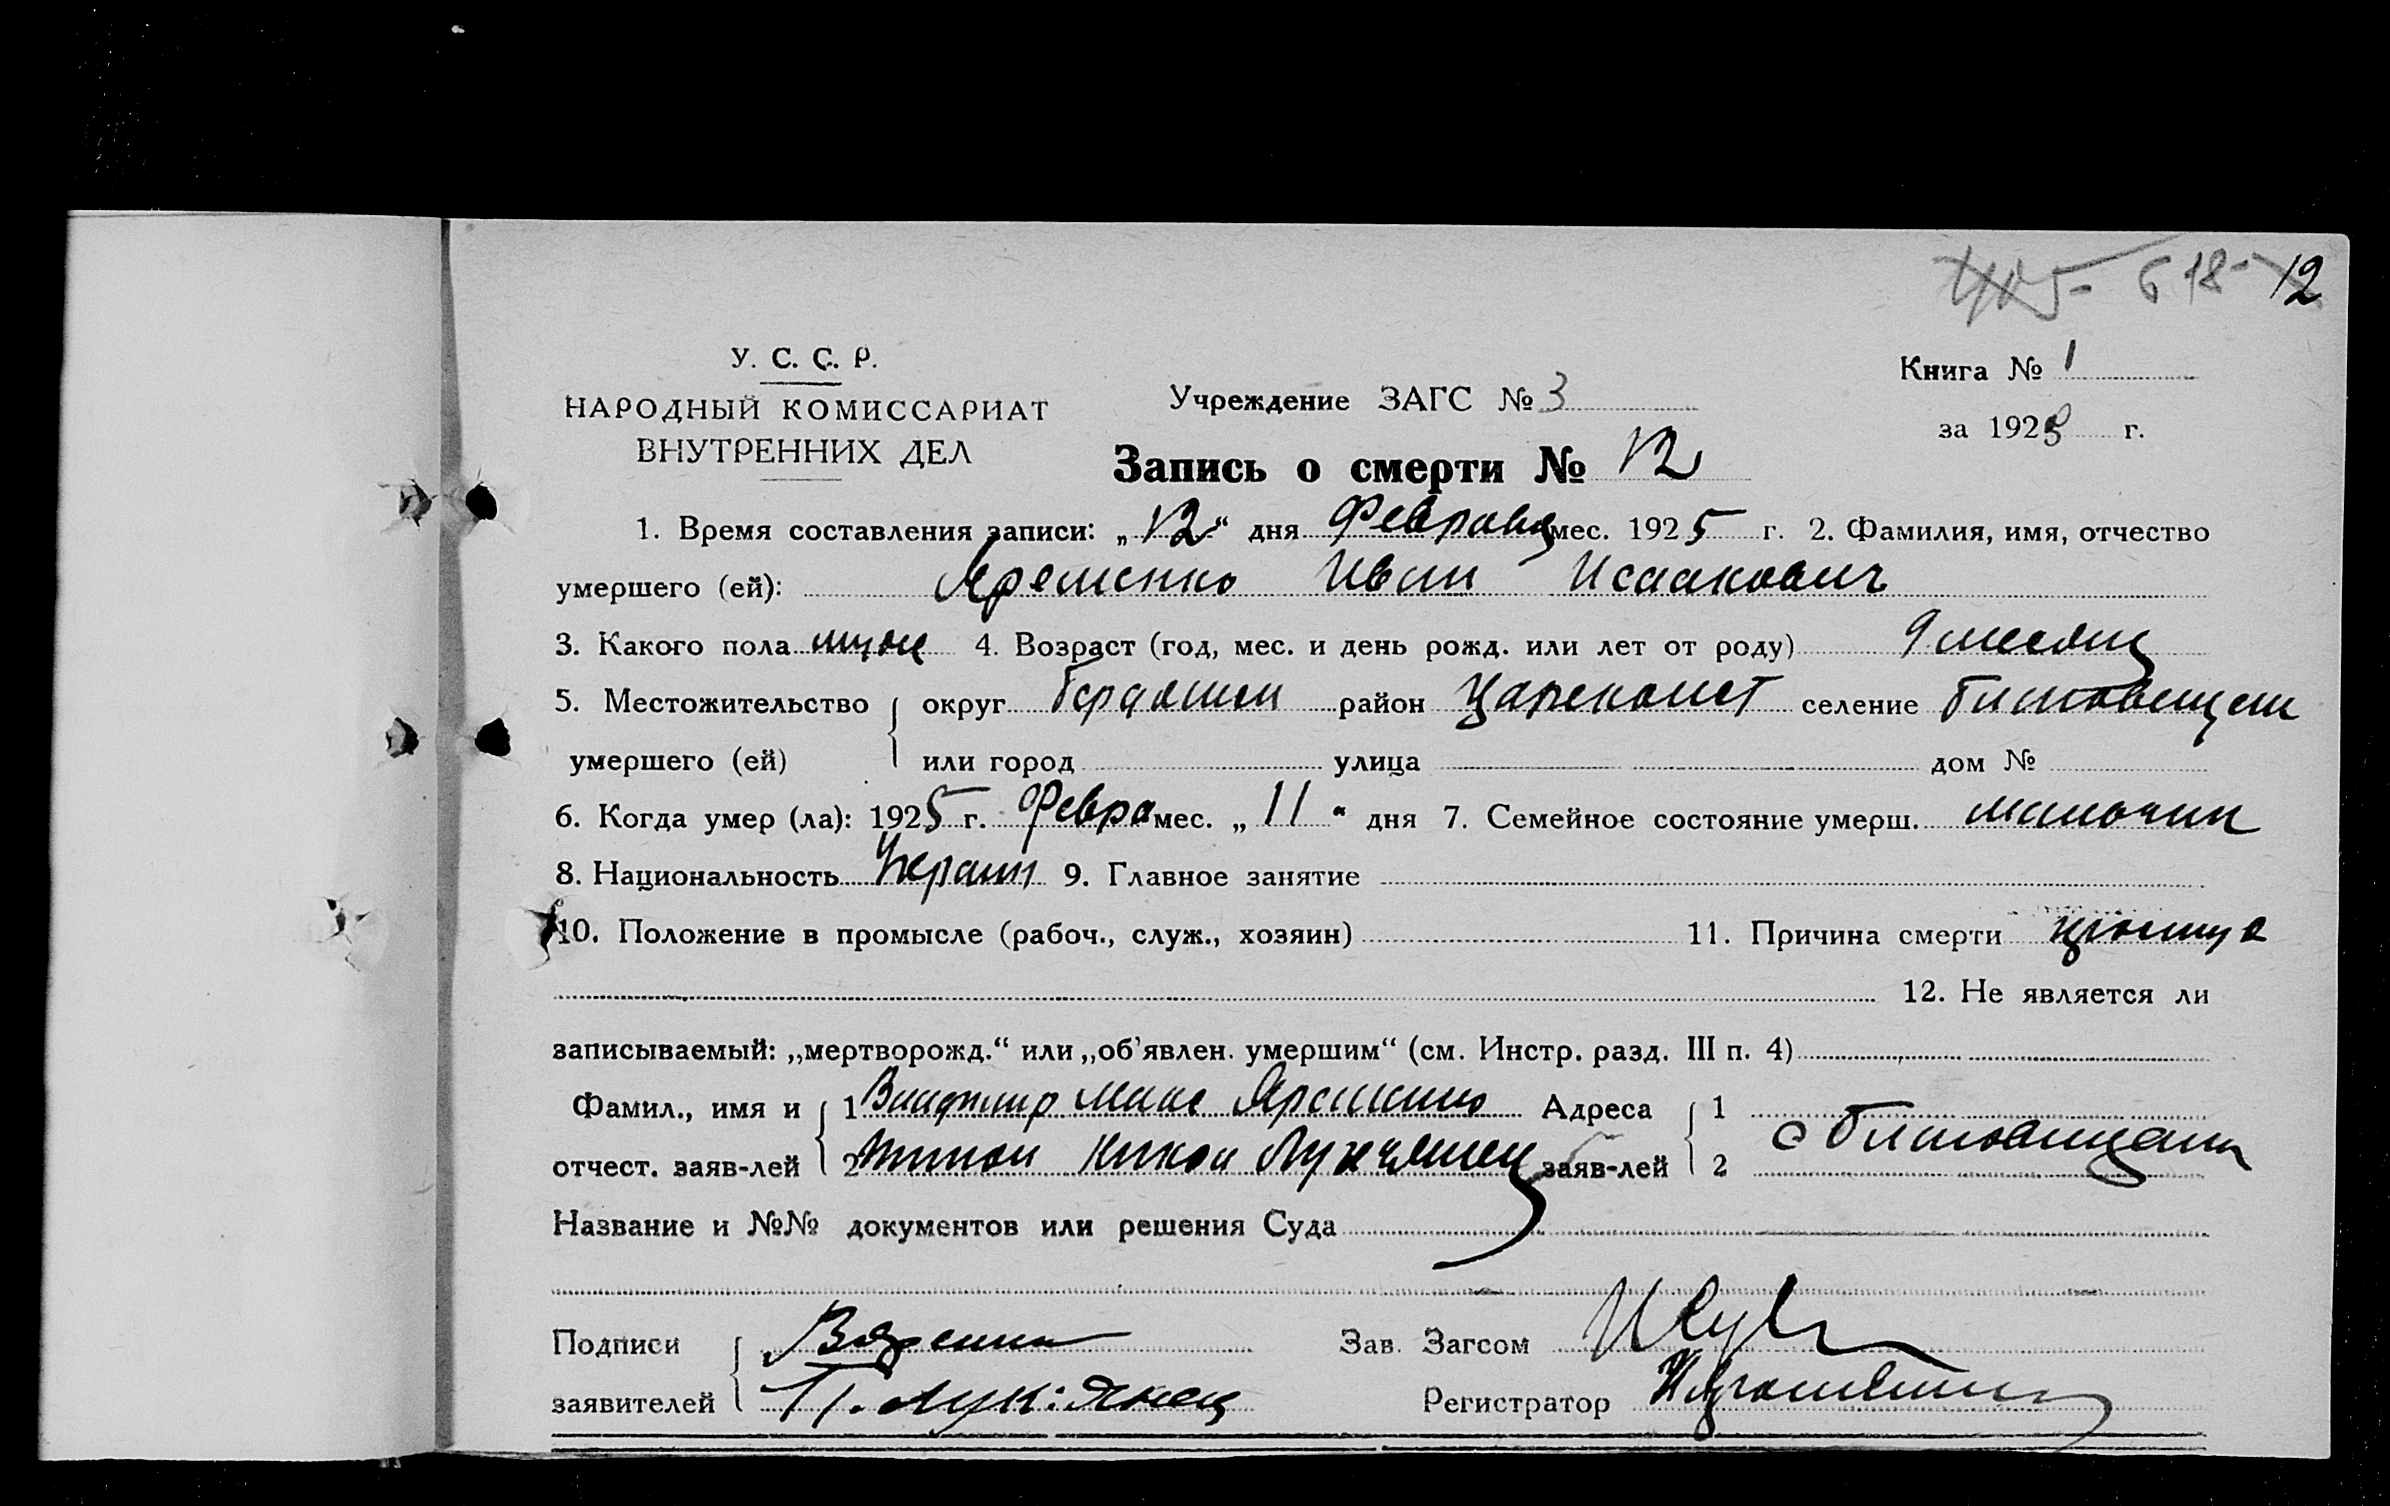 618- 12
У. С. С. Р.
НАРОДНЫЙ КОМИССАРИАТ
ВНУТРЕННИХ ДЕЛ
Учреждение ЗАГС № 3
Книга № 1
за 1925 г.
Запись о смерти № 12
1. Время составления записи: „12“ дня Февраля мес. 1925 г. 2. Фамилия, имя, отчество
умершего (ей): Яременко Иван Исаакович
3. Какого пола муж 4. Возраст (год, мес. и день рожд. или лет от роду) 9 месяц
5. Местожительство округ район Царекост селение
умершего (ей) или город улица дом №
6. Когда умер (ла): 1925 г. Февра мес. „11“ дня 7. Семейное состояние умерш.
8. Национальность Украин 9. Главное занятие
10. Положение в промысле (рабоч., служ., хозяин) 11. Причина смерти
12. Не является ли
записываемый: „мертворожд.“ или „об’явлен. умершим“ (см. Инстр. разд. III п. 4)
Фамил., имя и 1 Владимир Яременко Адреса 1
отчест. заяв-лей 2 Лукъянец заяв-лей 2
Название и №№ документов или решения Суда
Подписи Зав. Загсом
заявителей П. Лук:янец Регистратор